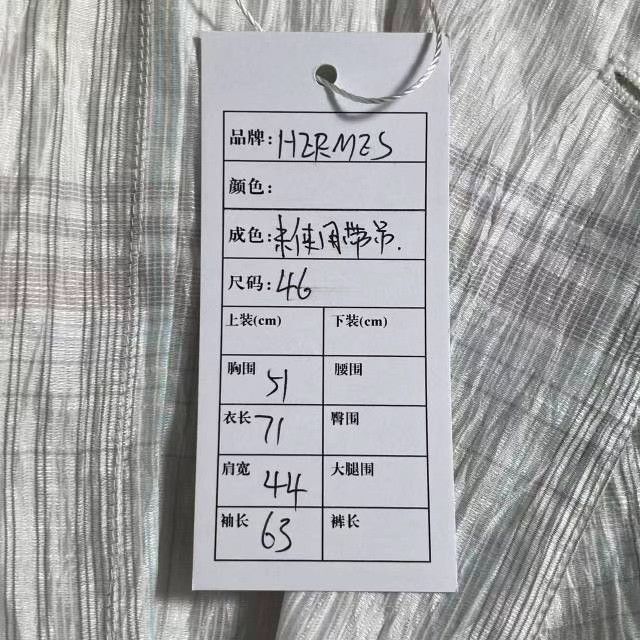 品牌: HERMES
颜色:
成色: 未使用带吊.
尺码: 46
上装(cm) 下装(cm)
胸围 51 腰围
衣长 71 臀围
肩宽 44 大腿围
袖长 63 裤长